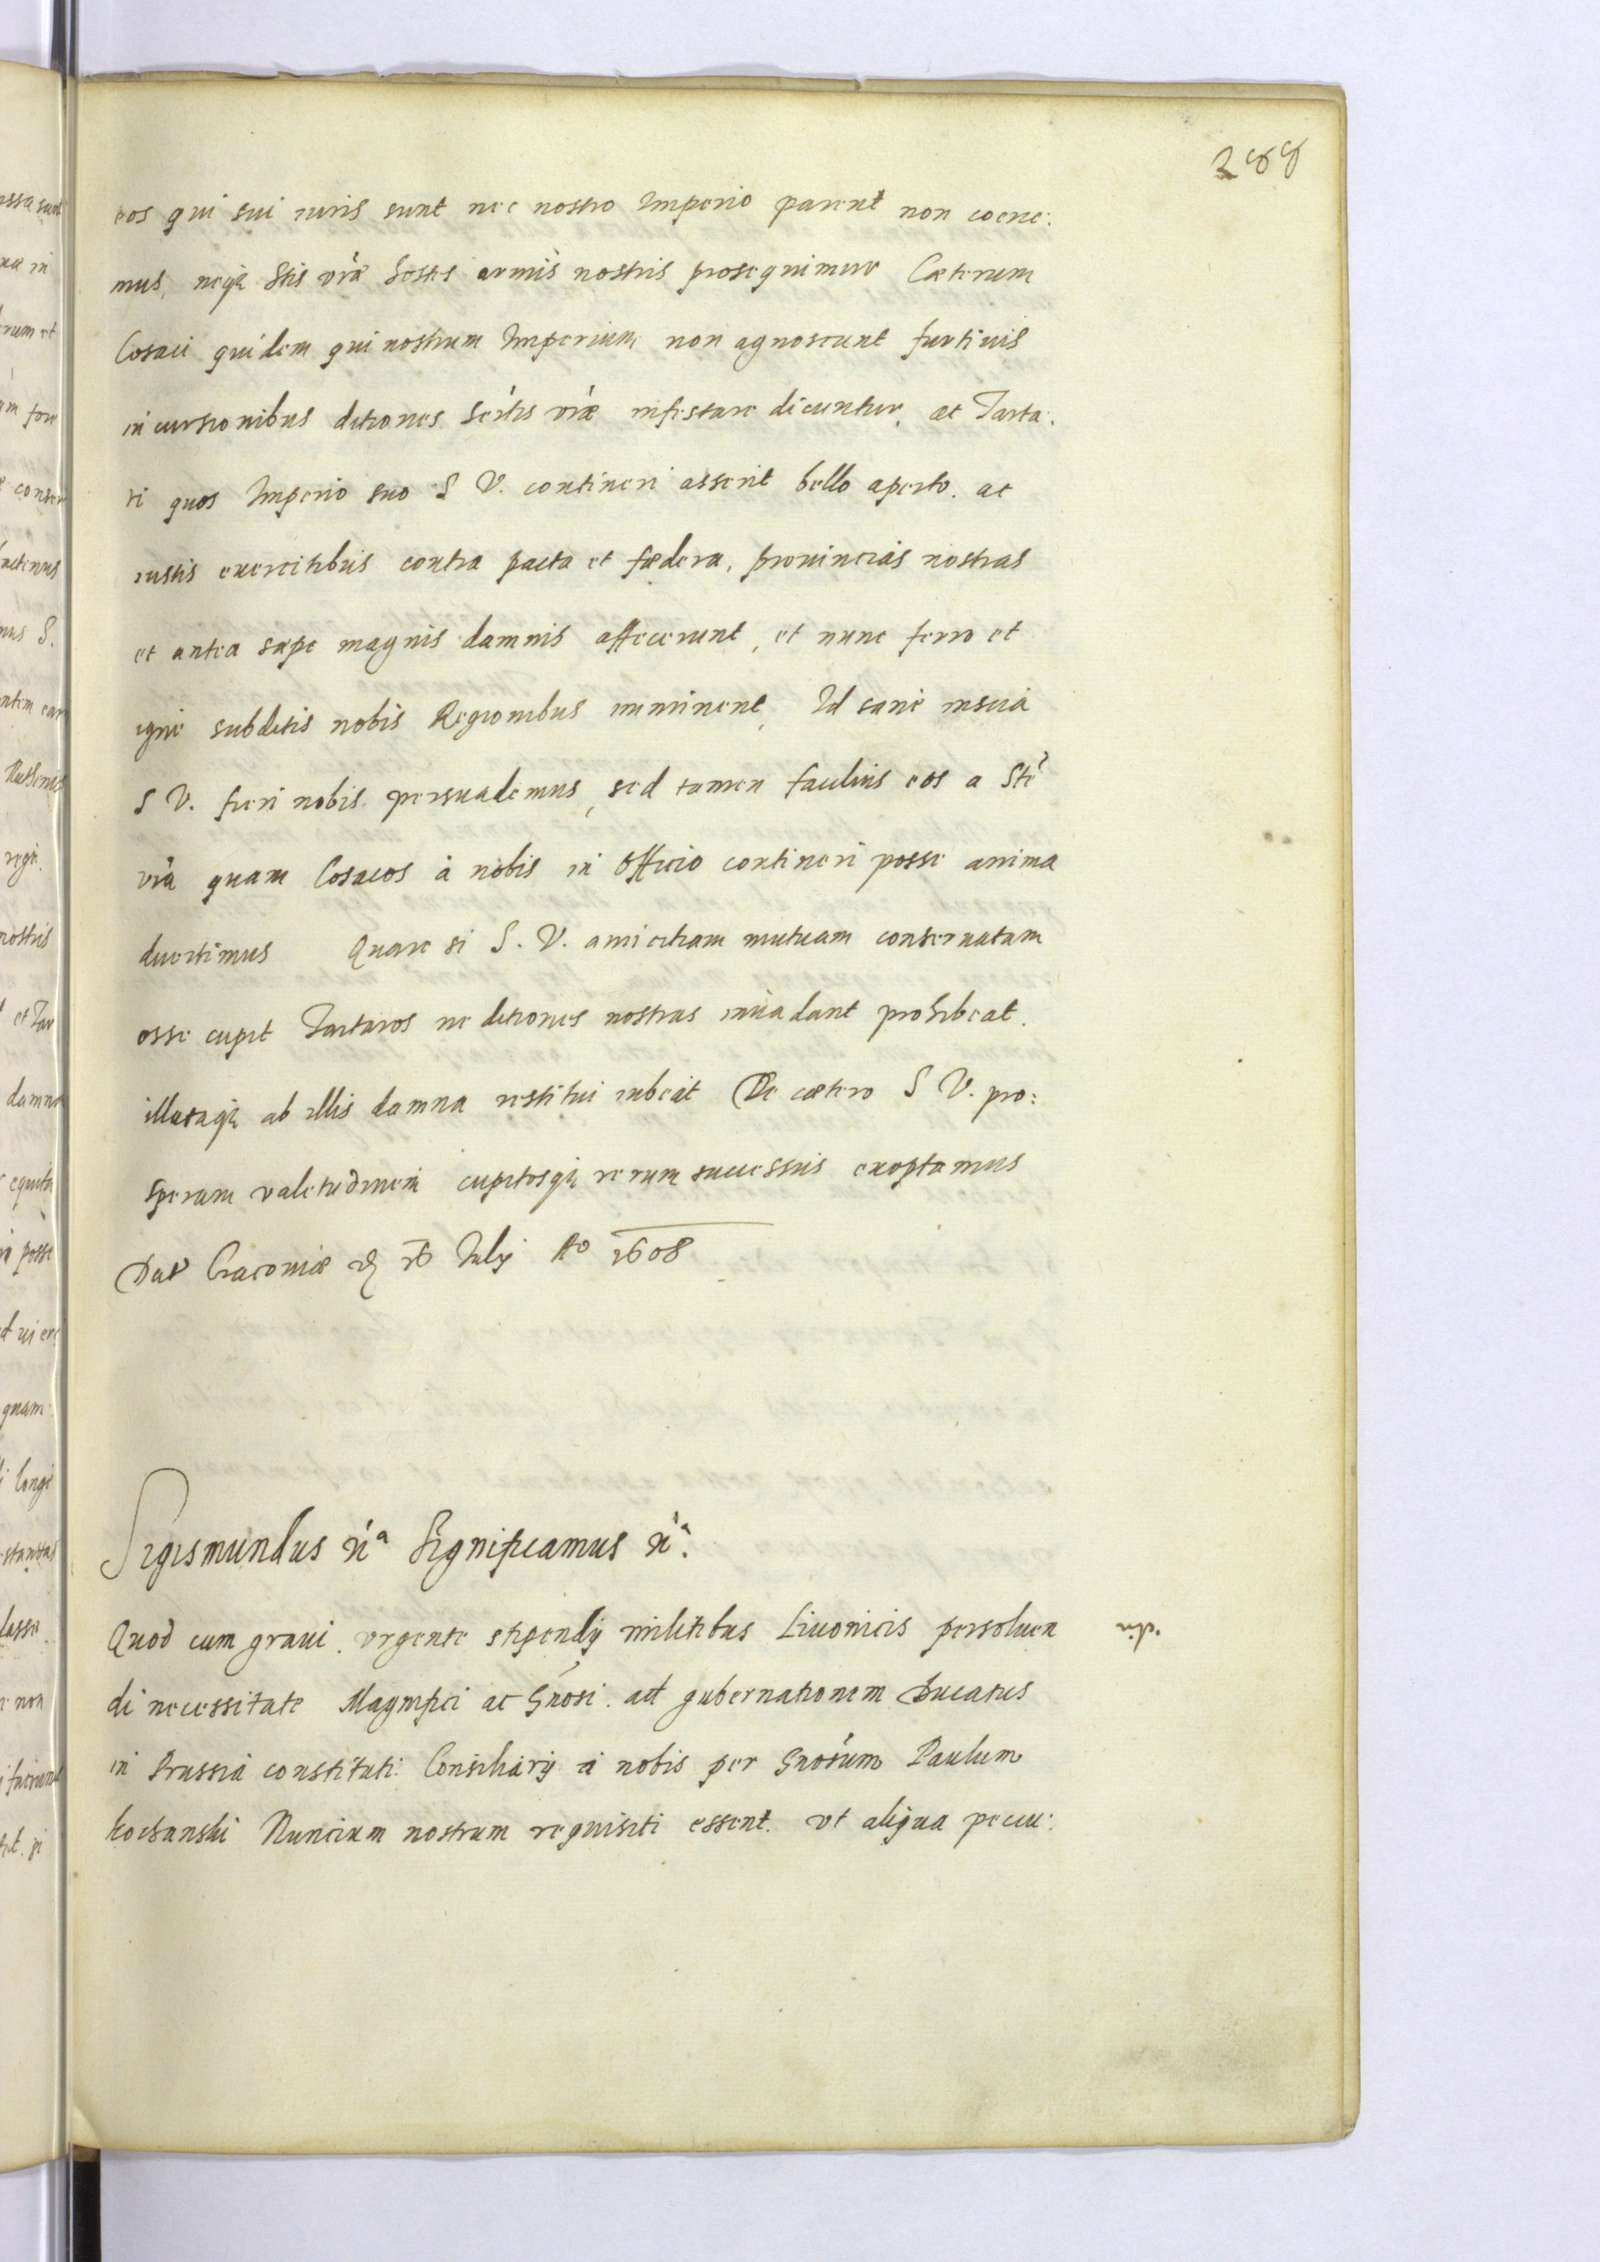 288
eos qui sui iuris sunt nec nostro Imperio parent non coerce:
mus, neq3 Stis vrae hostes armis nostris prosequimur Caeterum
Cosaci quidem qui nostrum Imperium non agnoscunt furtiuis
incursionibus ditiones Sertis vrae infestare dicuntur, at Tarta:
ri quos Imperio suo S V. contineri asserit bello aperto. ac
iustis exercitibus contra pacta et faedera, prouincias nostras
et antea saepe magnis damnis affecerunt, et nunc ferro et
igne subditis nobis Regionibus imminent, Id sane inscia
S V. fieri nobis persuademus, sed tamen facilius eos a Ste
vra quam Cosacos a nobis in officio contineri posse anima
duertimus Quare si S. V. amicitiam mutuam conseruatam
esse cupit Tartaros ne ditiones nostras inuadant prohibeat.
illataq3 ab illis damna restitui iubeat De caetero S V. pro:
speram valetudinem cupitosq3 rerum successus exoptamus
Dat Cracouiae 16 Iulij Ao 1608
Sigismundus Significamus
Quod cum graui vrgente stipendij militibus Liuonicis persoluen
di necessitate Magnifici ac Gnosi. ad gubernationem Ducatus
in Prussia constituti Consiliarij a nobis per Gnosum Paulum
kochanski Nuncium nostrum requisiti essent. vt aliqua pecu: